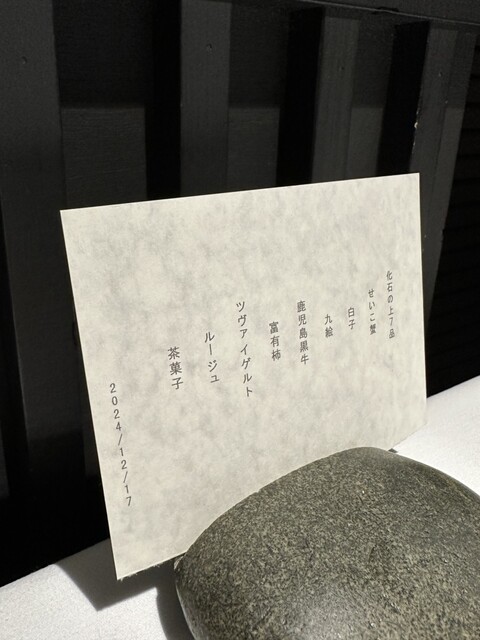 化石の上7品
せいこ蟹
白子
九絵
鹿児島黒牛
富有柿
ツヴァイゲルト
ルージュ
茶菓子
2024/12/17